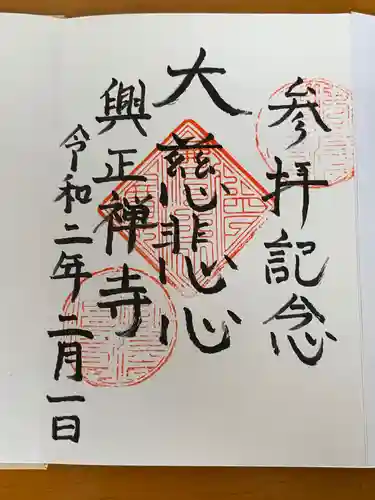 参拝記念
大慈悲心
興正禅寺
令和二年二月一日